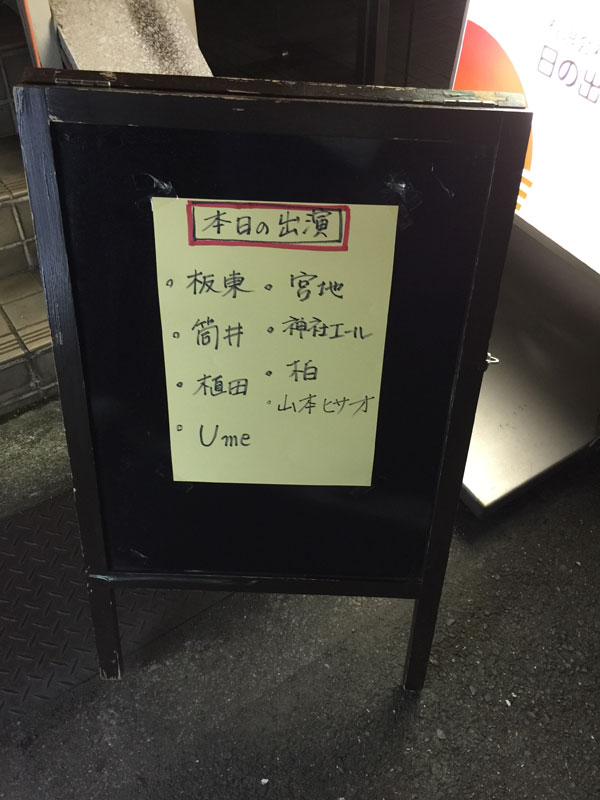 本日の出演
・板東
・筒井
・植田
・Ume
・宮地
・神社エール
・柏
・山本ヒサオ
日の出